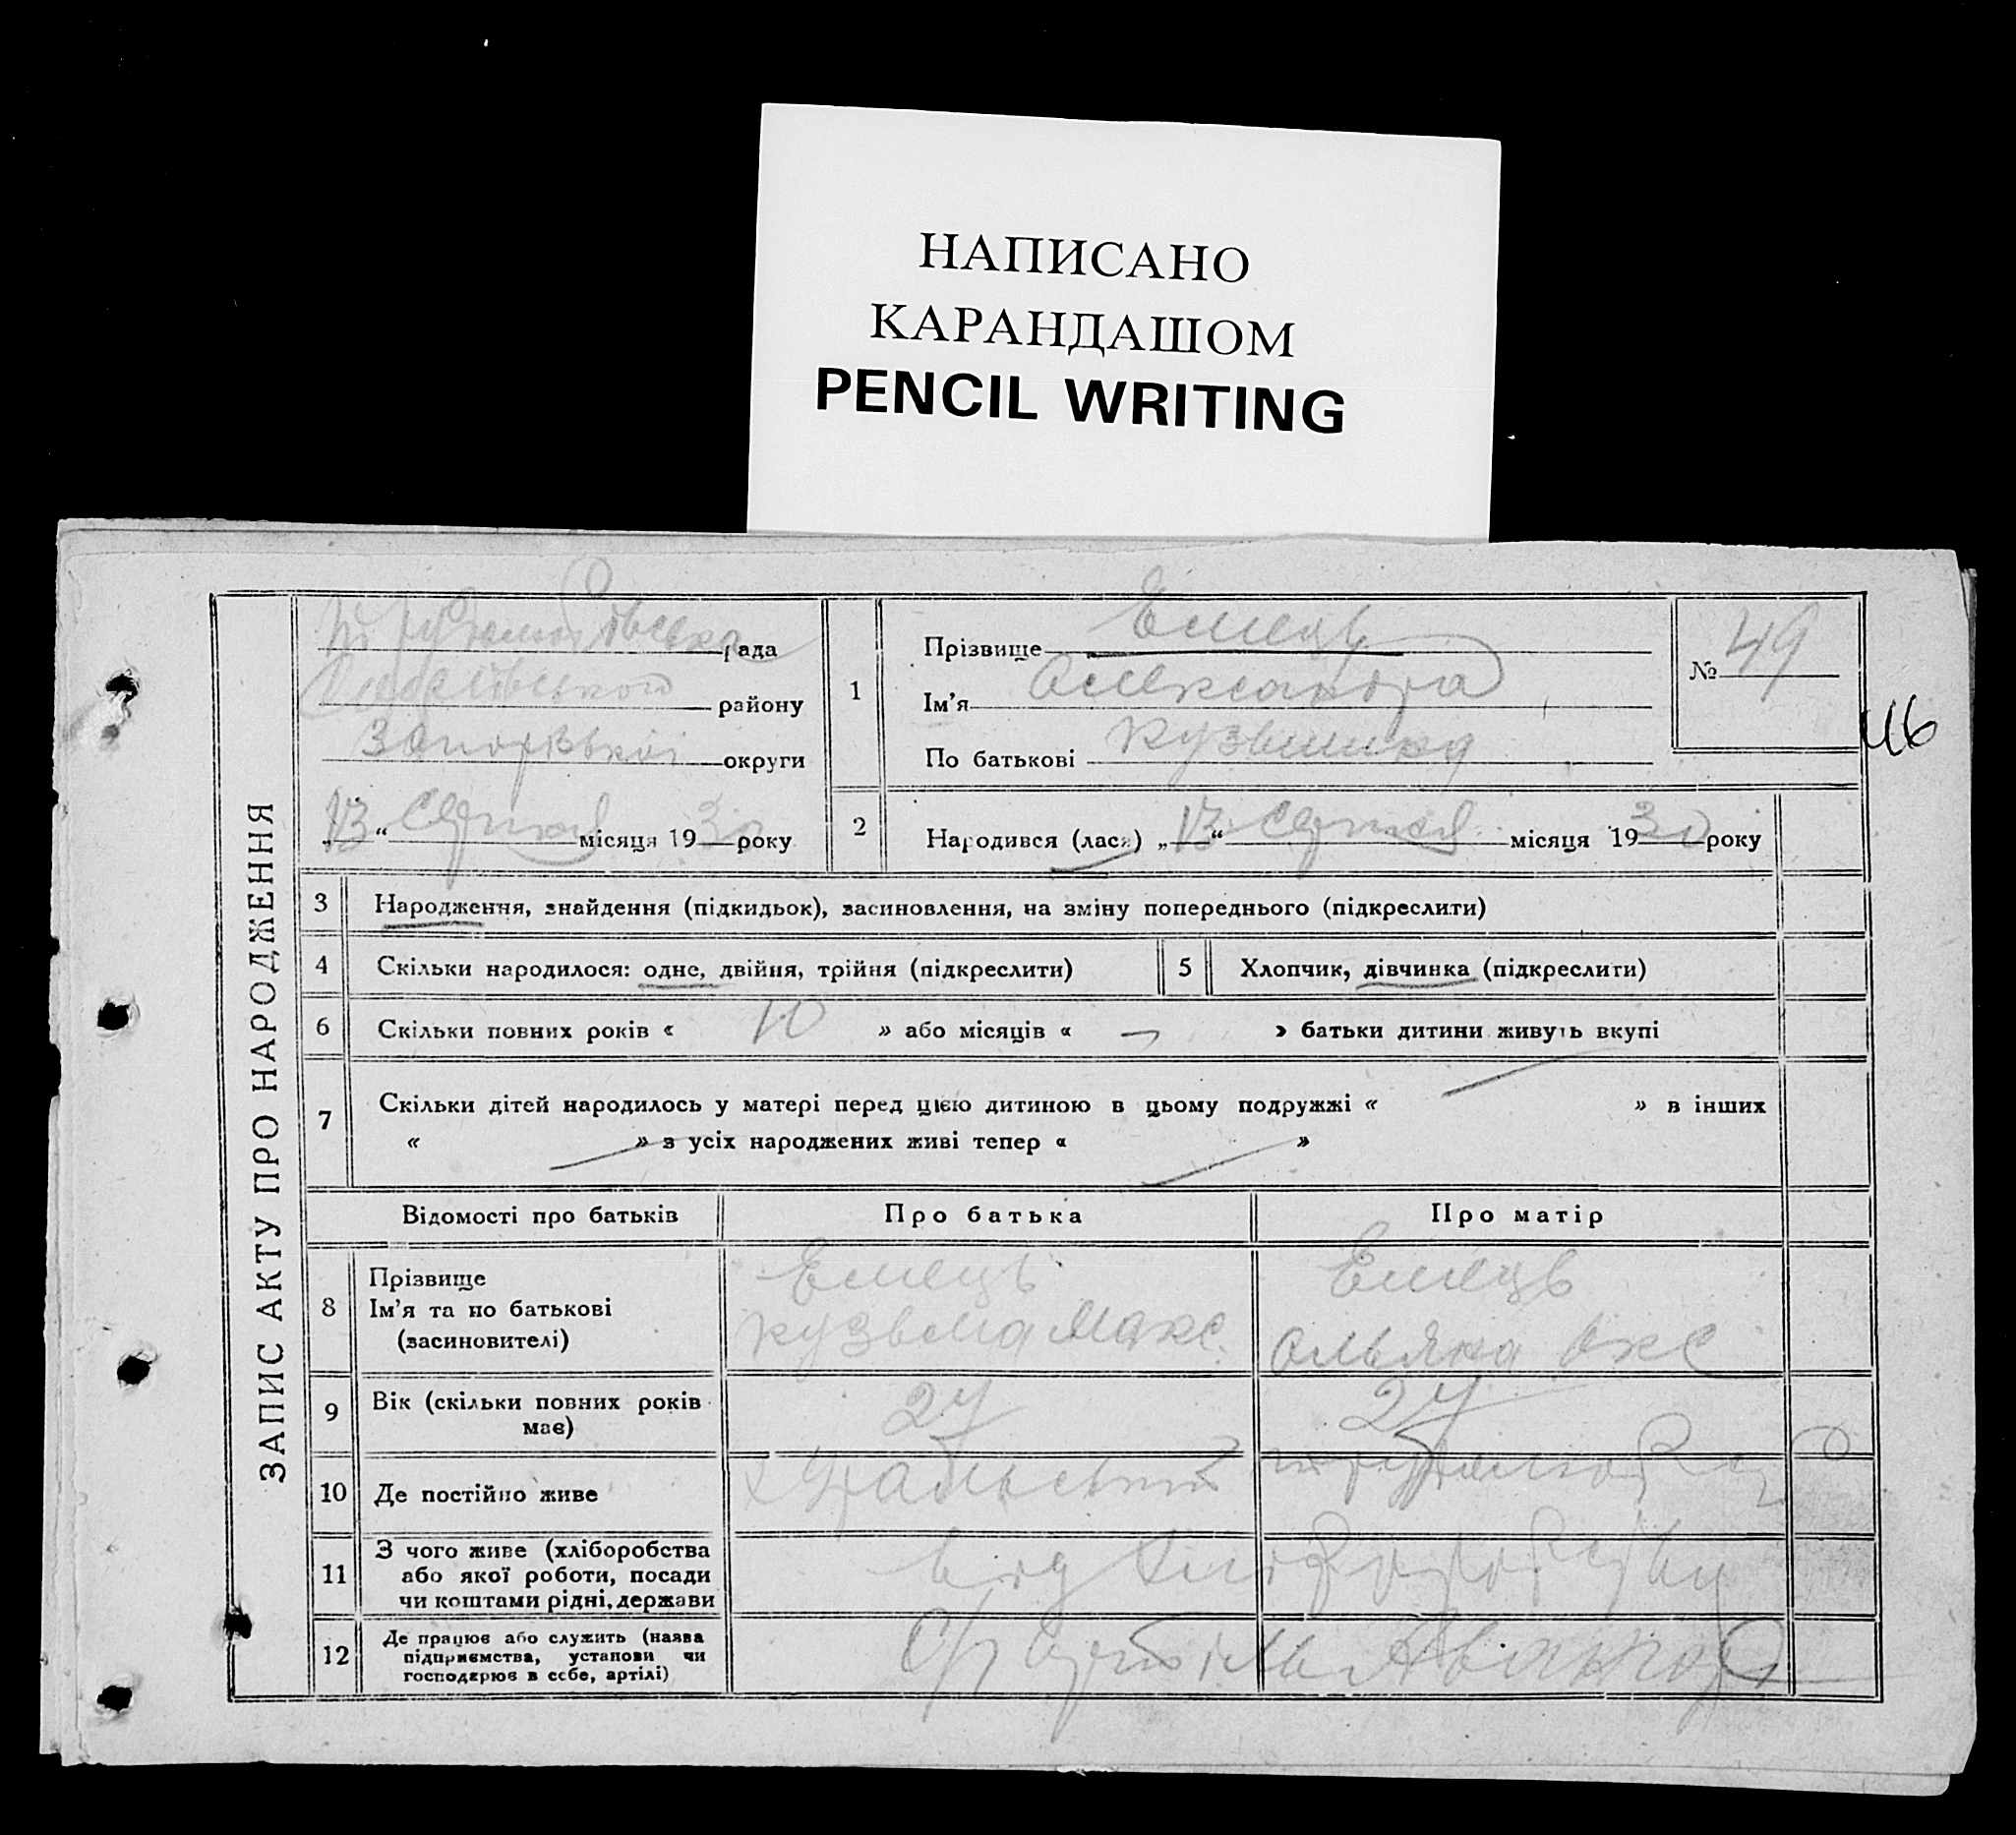 НАПИСАНО
КАРАНДАШОМ
PENCIL WRITING
ЗАПИС АКТУ ПРО НАРОДЖЕННЯ
рада
району
Запорізької округи
„13“ серпня місяця 1930 року
1
Прізвище Емець
Ім'я Олександра
По батькові Кузьминна
№ 49
46
2
Народився (лася) „13“ серпня місяця 1930 року
3 Народження, знайдення (підкидьок), засиновлення, на зміну попереднього (підкреслити)
4 Скільки народилося: одне, двійня, трійня (підкреслити)
5 Хлопчик, дівчинка (підкреслити)
6 Скільки повних років « 10 » або місяців « — » батьки дитини живуть вкупі
7 Скільки дітей народилось у матері перед цією дитиною в цьому подружжі « » в інших
« » з усіх народжених живі тепер « »
Відомості про батьків Про батька Про матір
8 Прізвище
Ім'я та по батькові
(засиновителі)
Емець
Кузьма Макс.
Емець
Ульяна
9 Вік (скільки повних років
має)
27
27
10 Де постійно живе
11 З чого живе (хліборобства
або якої роботи, посади
чи коштами рідні, держави
від хліборобства
12 Де працює або служить (назва
підприємства, установи чи
господарює в себе, артілі)
с/г артіль Авангард